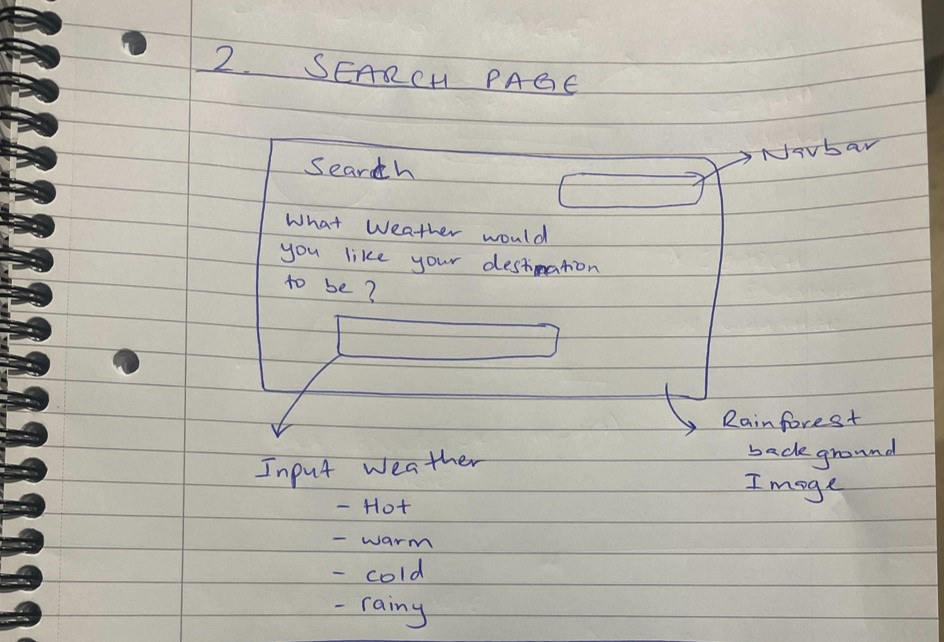 2. SEARCH PAGE
Search
Navbar
What Weather would
you like your destination
to be?
Rainforest
background
Image
Input Weather
- Hot
- warm
- cold
- rainy